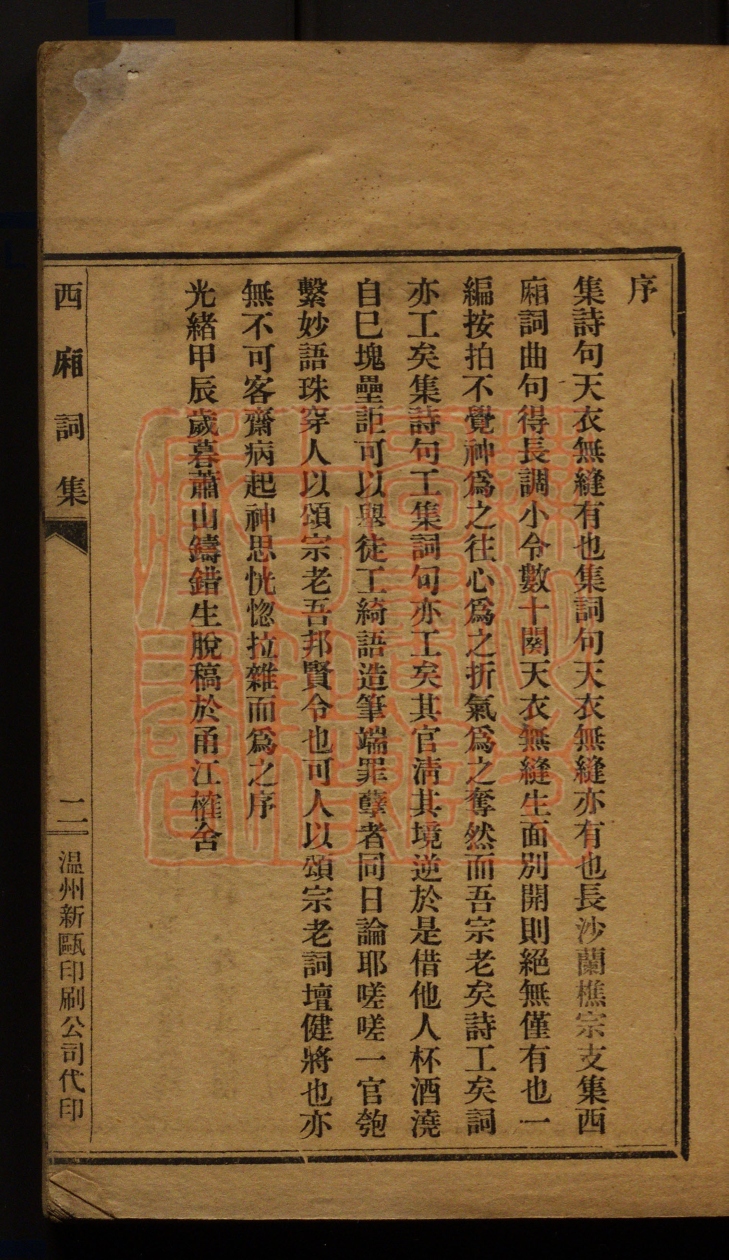 序
集詩句天衣無縫有也集詞句天衣無縫亦有也長沙蘭樵宗支集西
廂詞曲句得長調小令數十闋天衣無縫生面別開則絕無僅有也一
編按拍不覺神爲之往心爲之折氣爲之奪然而吾宗老矣詩工矣詞
亦工矣集詩句工集詞句亦工矣其官淸其境逆於是借他人杯酒澆
自已塊壘詎可以與徒工綺語造筆端罪孽者同日論耶嗟嗟一官匏
繫妙語珠穿人以頌宗老吾邦賢令也可人以頌宗老詞壇健將也亦
無不可客齋病起神思恍惚拉雜而爲之序
光緒甲辰歲暮蕭山鑄錯生脫稿於甬江榷舍
西廂詞集
二
温州新甌印刷公司代印